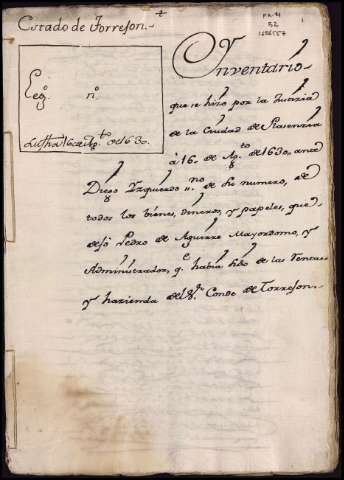 Estado de Torrejon.
Leg.º n.º
Su fha 16 de Ag.to de 1630.
Ynventário
que se hizo por la Justizia
de la Ciudad de Plasenzia
á 16. de Ag.to de 1630. ante
Diego Yzquierdo s.no de su numero, de
todos los bienes, dineros, y papeles, que
dejó Pedro de Aguirre Mayordomo, y
Administrador, q.e habia sido de las Rentas
y hazienda del S.r Conde de Torrejon.